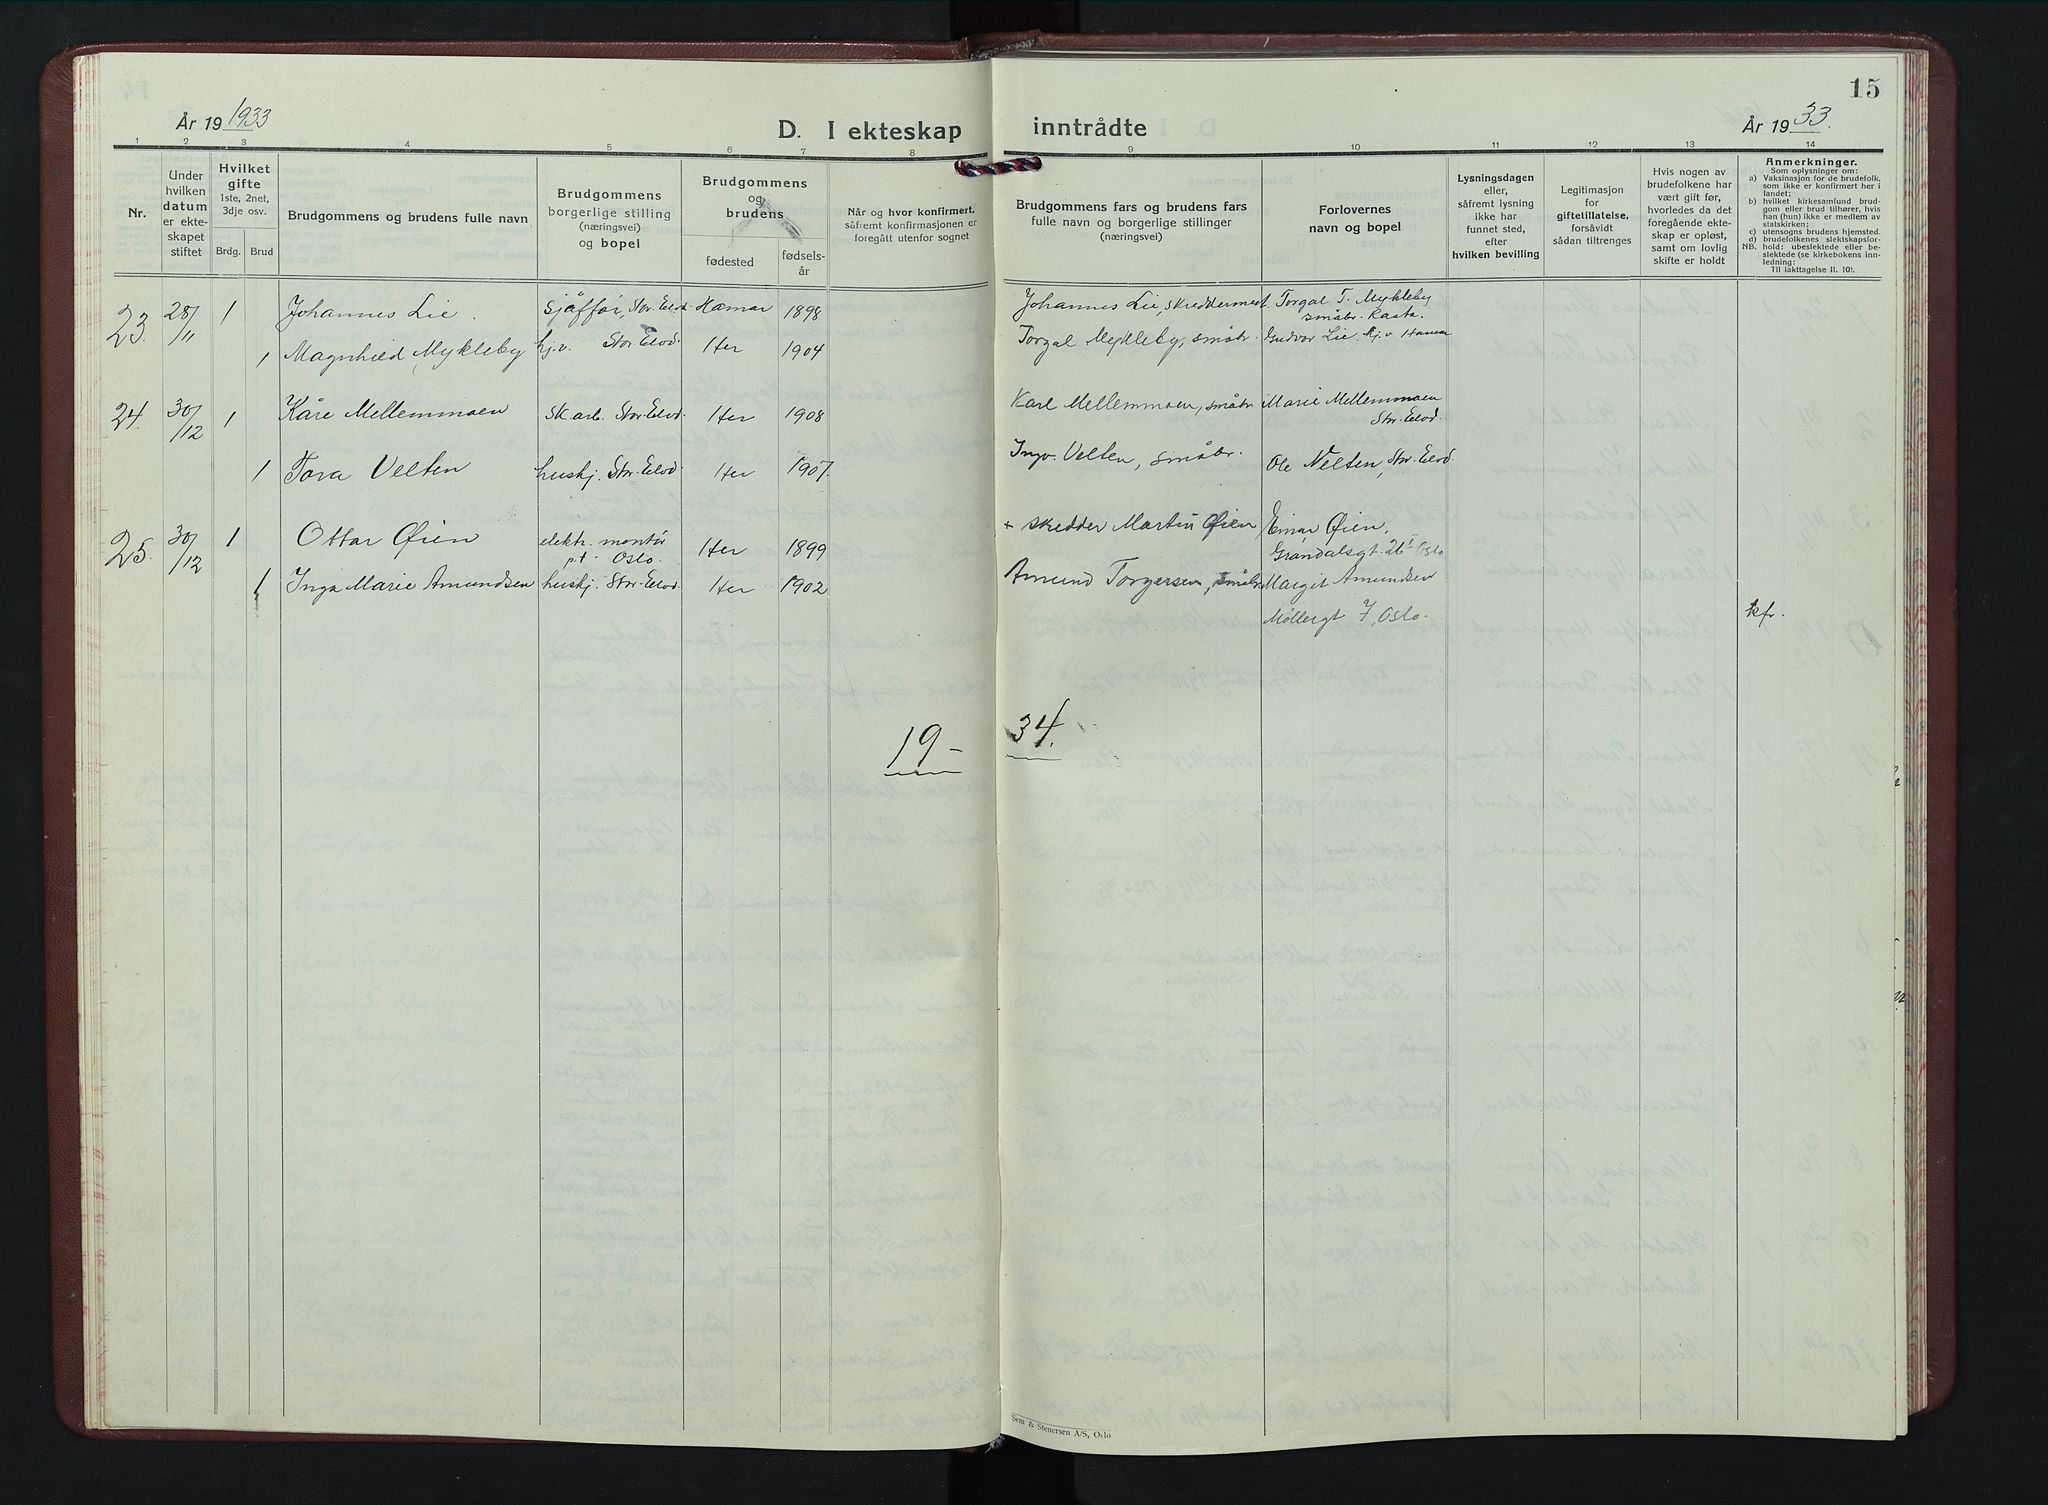 15
År 19 1933
D. I ekteskap inntrådte
År 19 33.
1 2 3 4 5 6 7 8 9 10 11 12 13 14
Nr.
Under hvilken datum er ekteskapet stiftet
Hvilket gifte 1ste, 2net, 3dje osv.
Brdg. Brud
Brudgommens og brudens fulle navn
Brudgommens borgerlige stilling (næringsvei) og bopel
Brudgommens og brudens
fødested
fødselsår
Når og hvor konfirmert, såfremt konfirmasjonen er foregått utenfor sognet
Brudgommens fars og brudens fars fulle navn og borgerlige stillinger (næringsvei)
Forlovernes navn og bopel
Lysningsdagen eller, såfremt lysning ikke har funnet sted, efter hvilken bevilling
Legitimasjon for giftetillatelse, forsåvidt sådan tiltrenges
Hvis nogen av brudefolkene har vært gift før, hvorledes da det foregående ekteskap er opløst, samt om lovlig skifte er holdt
Anmerkninger.
Som oplysninger om:
a) Vaksinasjon for de brudefolk, som ikke er konfirmert her i landet;
b) hvilket kirkesamfund brudgom eller brud tilhører, hvis han (hun) ikke er medlem av statskirken;
c) utensogns brudens hjemsted.
d) brudefolkenes slektskapsforhold: ubeslektede eller beslektede (se kirkebokens innledning:
NB. Til iakttagelse II. 10).
23. 28/11 1 Johannes Lie. Sjåffør, Stor-Elvd. Hamar 1898 Johannes Lie, skreddermest. Torgal T. Mykleby småbr. Rasta.
1 Magnhild Mykleby hj.v. Stor-Elvd. Her 1904 Torgal Mykleby, småbr. Gudvor Lie hj.v Hamar
24. 30/12 1 Kåre Mellemmoen skarb. Stor-Elvd. Her 1908 Karl Mellemmoen, småbr. Marie Mellemmoen Stor-Elvd.
1 Tora Velten hushj. Stor-Elvd. Her 1907. Ingv. Velten, småbr. Ole Velten, Stor-Elvd.
25. 30/12 1 Ottar Øien elektr. montør p.t Oslo. Her 1899 + skredder Martin Øien Einar Øien, Grøndalsgt. 26 I Oslo
1 Inga Marie Amundsen hushj. Stor-Elvd. Her 1902 Amund Torgersen, småbr. Margit Amundsen
Møllergt 7, Oslo. kfr.
19 - 34.
Sem & Stenersen A/S, Oslo